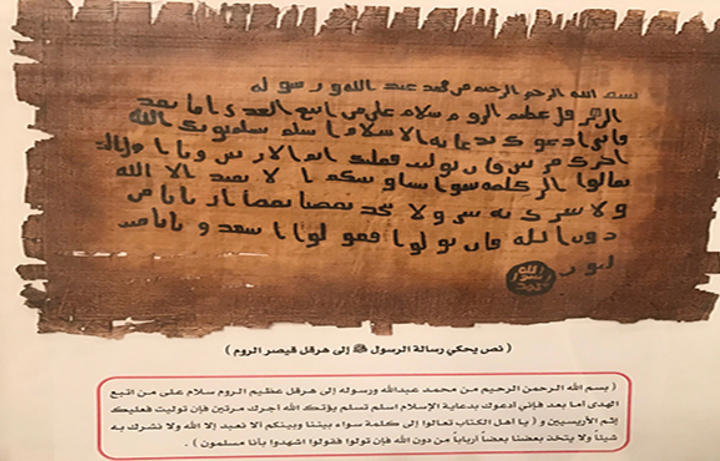 بسم الله الرحمن الرحيم من محمد عبد الله ورسوله
الى هرقل عظيم الروم سلام على من اتبع الهدى اما بعد
فانى ادعوك بدعاية الاسلام اسلم تسلم يوتك الله
اجرك مرتين فان توليت فعليك اثم الاريسين ويا اهل
تعالوا الى كلمة سوا بيننا وبينكم الا نعبد الا الله
ولا نشرك به ولا يتخذ بعضنا بعضا اربابا من
دون الله فان تولوا فقولوا اشهدوا بانا مس
لمون
الله
رسول
محمد
( نص يحكي رسالة الرسول ﷺ إلى هرقل قيصر الروم )
( بسم الله الرحمن الرحيم من محمد عبدالله ورسوله إلى هرقل عظيم الروم سلام على من اتبع
الهدى أما بعد فإني أدعوك بدعاية الإسلام اسلم تسلم يؤتك الله أجرك مرتين فإن توليت فعليك
إثم الأريسيين و ( يا اهل الكتاب تعالوا إلى كلمة سواء بيننا وبينكم ألا نعبد إلا الله ولا نشرك به
شيئاً ولا يتخذ بعضنا بعضاً أرباباً من دون الله فإن تولوا فقولوا اشهدوا بأنا مسلمون ) .